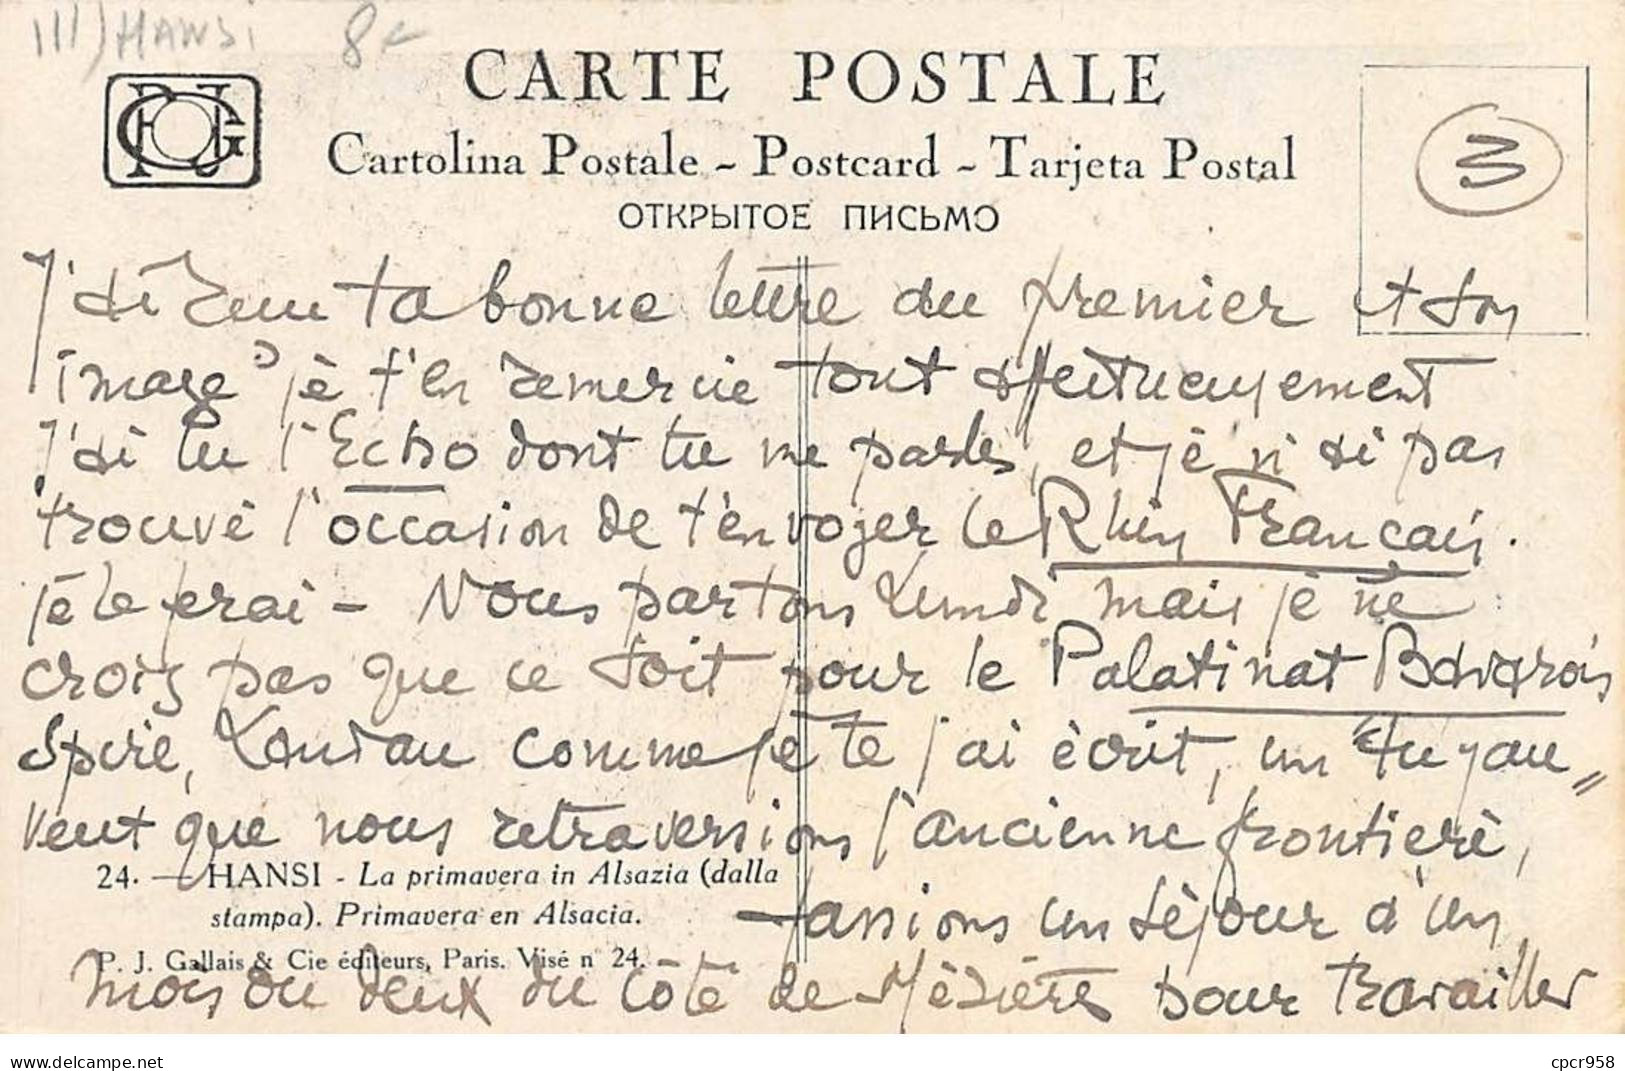 III) HANSI 8€
CARTE POSTALE
Cartolina Postale - Postcard - Tarjeta Postal
ОТКРЫТОЕ ПИСЬМО
3
J'ai reçu ta bonne lettre du premier et son
"image" je t'en remercie tout affectueusement
J'ai lu l'Echo dont tu me parles, et je n'ai pas
trouvé l'occasion de t'envoyer le Rhin Francais.
je le ferai - Nous partons Lundi mais je ne
crois pas que ce soit pour le Palatinat Bavarois
Spire, Landau comme je te j'ai écrit, un "tuyau"
veut que nous retraversions l'ancienne frontière,
24. — HANSI - La primavera in Alsazia (dalla
stampa). Primavera en Alsacia.
fassions un séjour d'un
P. J. Gallais & Cie éditeurs, Paris. Visé n° 24.
mois ou deux du côté de Mézières pour travailler
delcampe.net
cpcr958